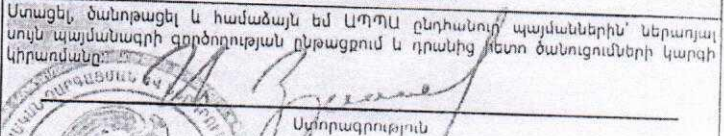 Ստացել, ծանոթացել և համաձայն եմ ԱՊՊԱ ընդհանուր պայմաններին՝ ներառյալ
սույն պայմանագրի գործողության ընթացքում և դրանից հետո ծանուցումների կարգի
կիրառմանը:
ԶԱՐԳԱՑՄԱՆ ԵՎ
Ստորագրություն